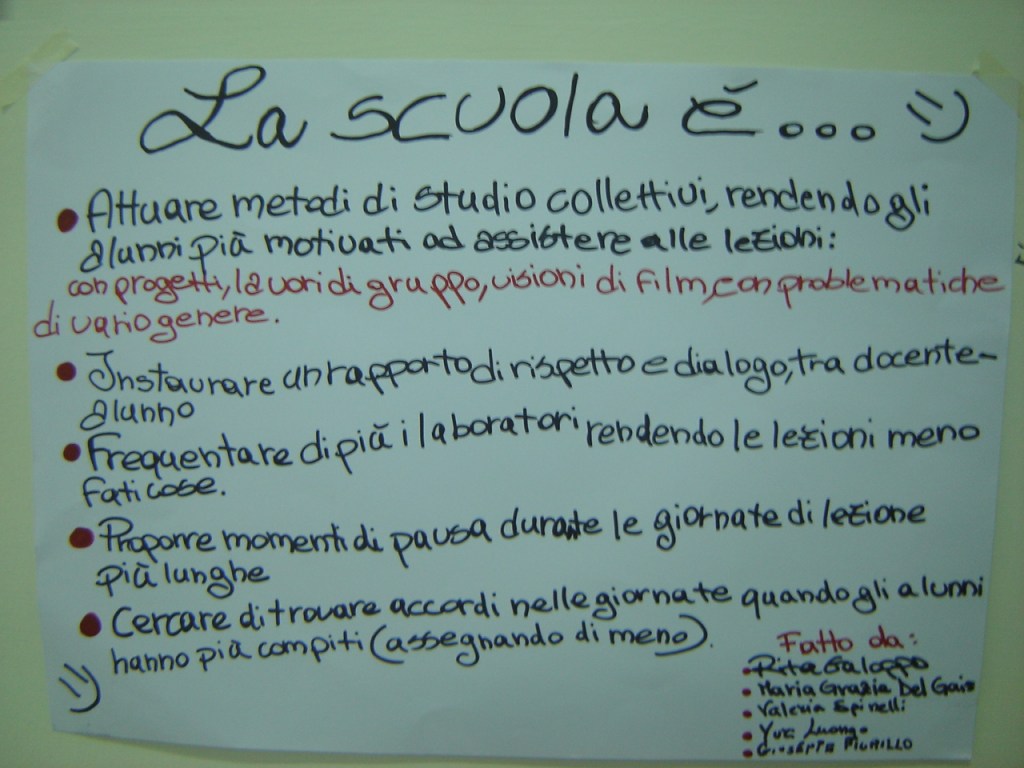 La scuola è... =)
• Attuare metodi di studio collettivi, rendendo gli
alunni più motivati ad assistere alle lezioni:
con progetti, lavori di gruppo, visioni di film, con problematiche
di vario genere.
• Instaurare un rapporto di rispetto e dialogo, tra docente-
alunno
• Frequentare di più i laboratori rendendo le lezioni meno
faticose.
• Proporre momenti di pausa durante le giornate di lezione
più lunghe
• Cercare di trovare accordi nelle giornate quando gli alunni
hanno più compiti (assegnando di meno).
=)
Fatto da:
• Rita Galoppo
• Maria Grazia Del Gais
• Valeria Spinelli
• Luongo
• Giuseppe